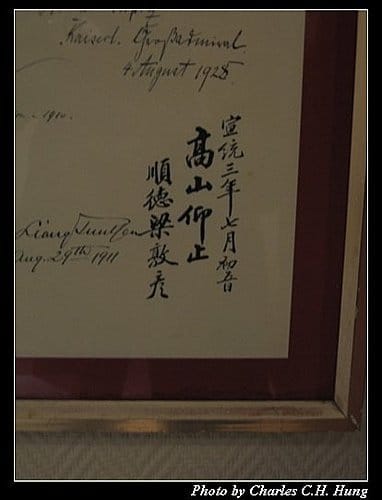 Kaiserl. Großadmiral
4 August 1925.
1910.
宣統三年七月初吉
高山仰止
順德梁敦彦
Liang Tun Yen
Aug. 29th 1911
Photo by Charles C.H. Hung